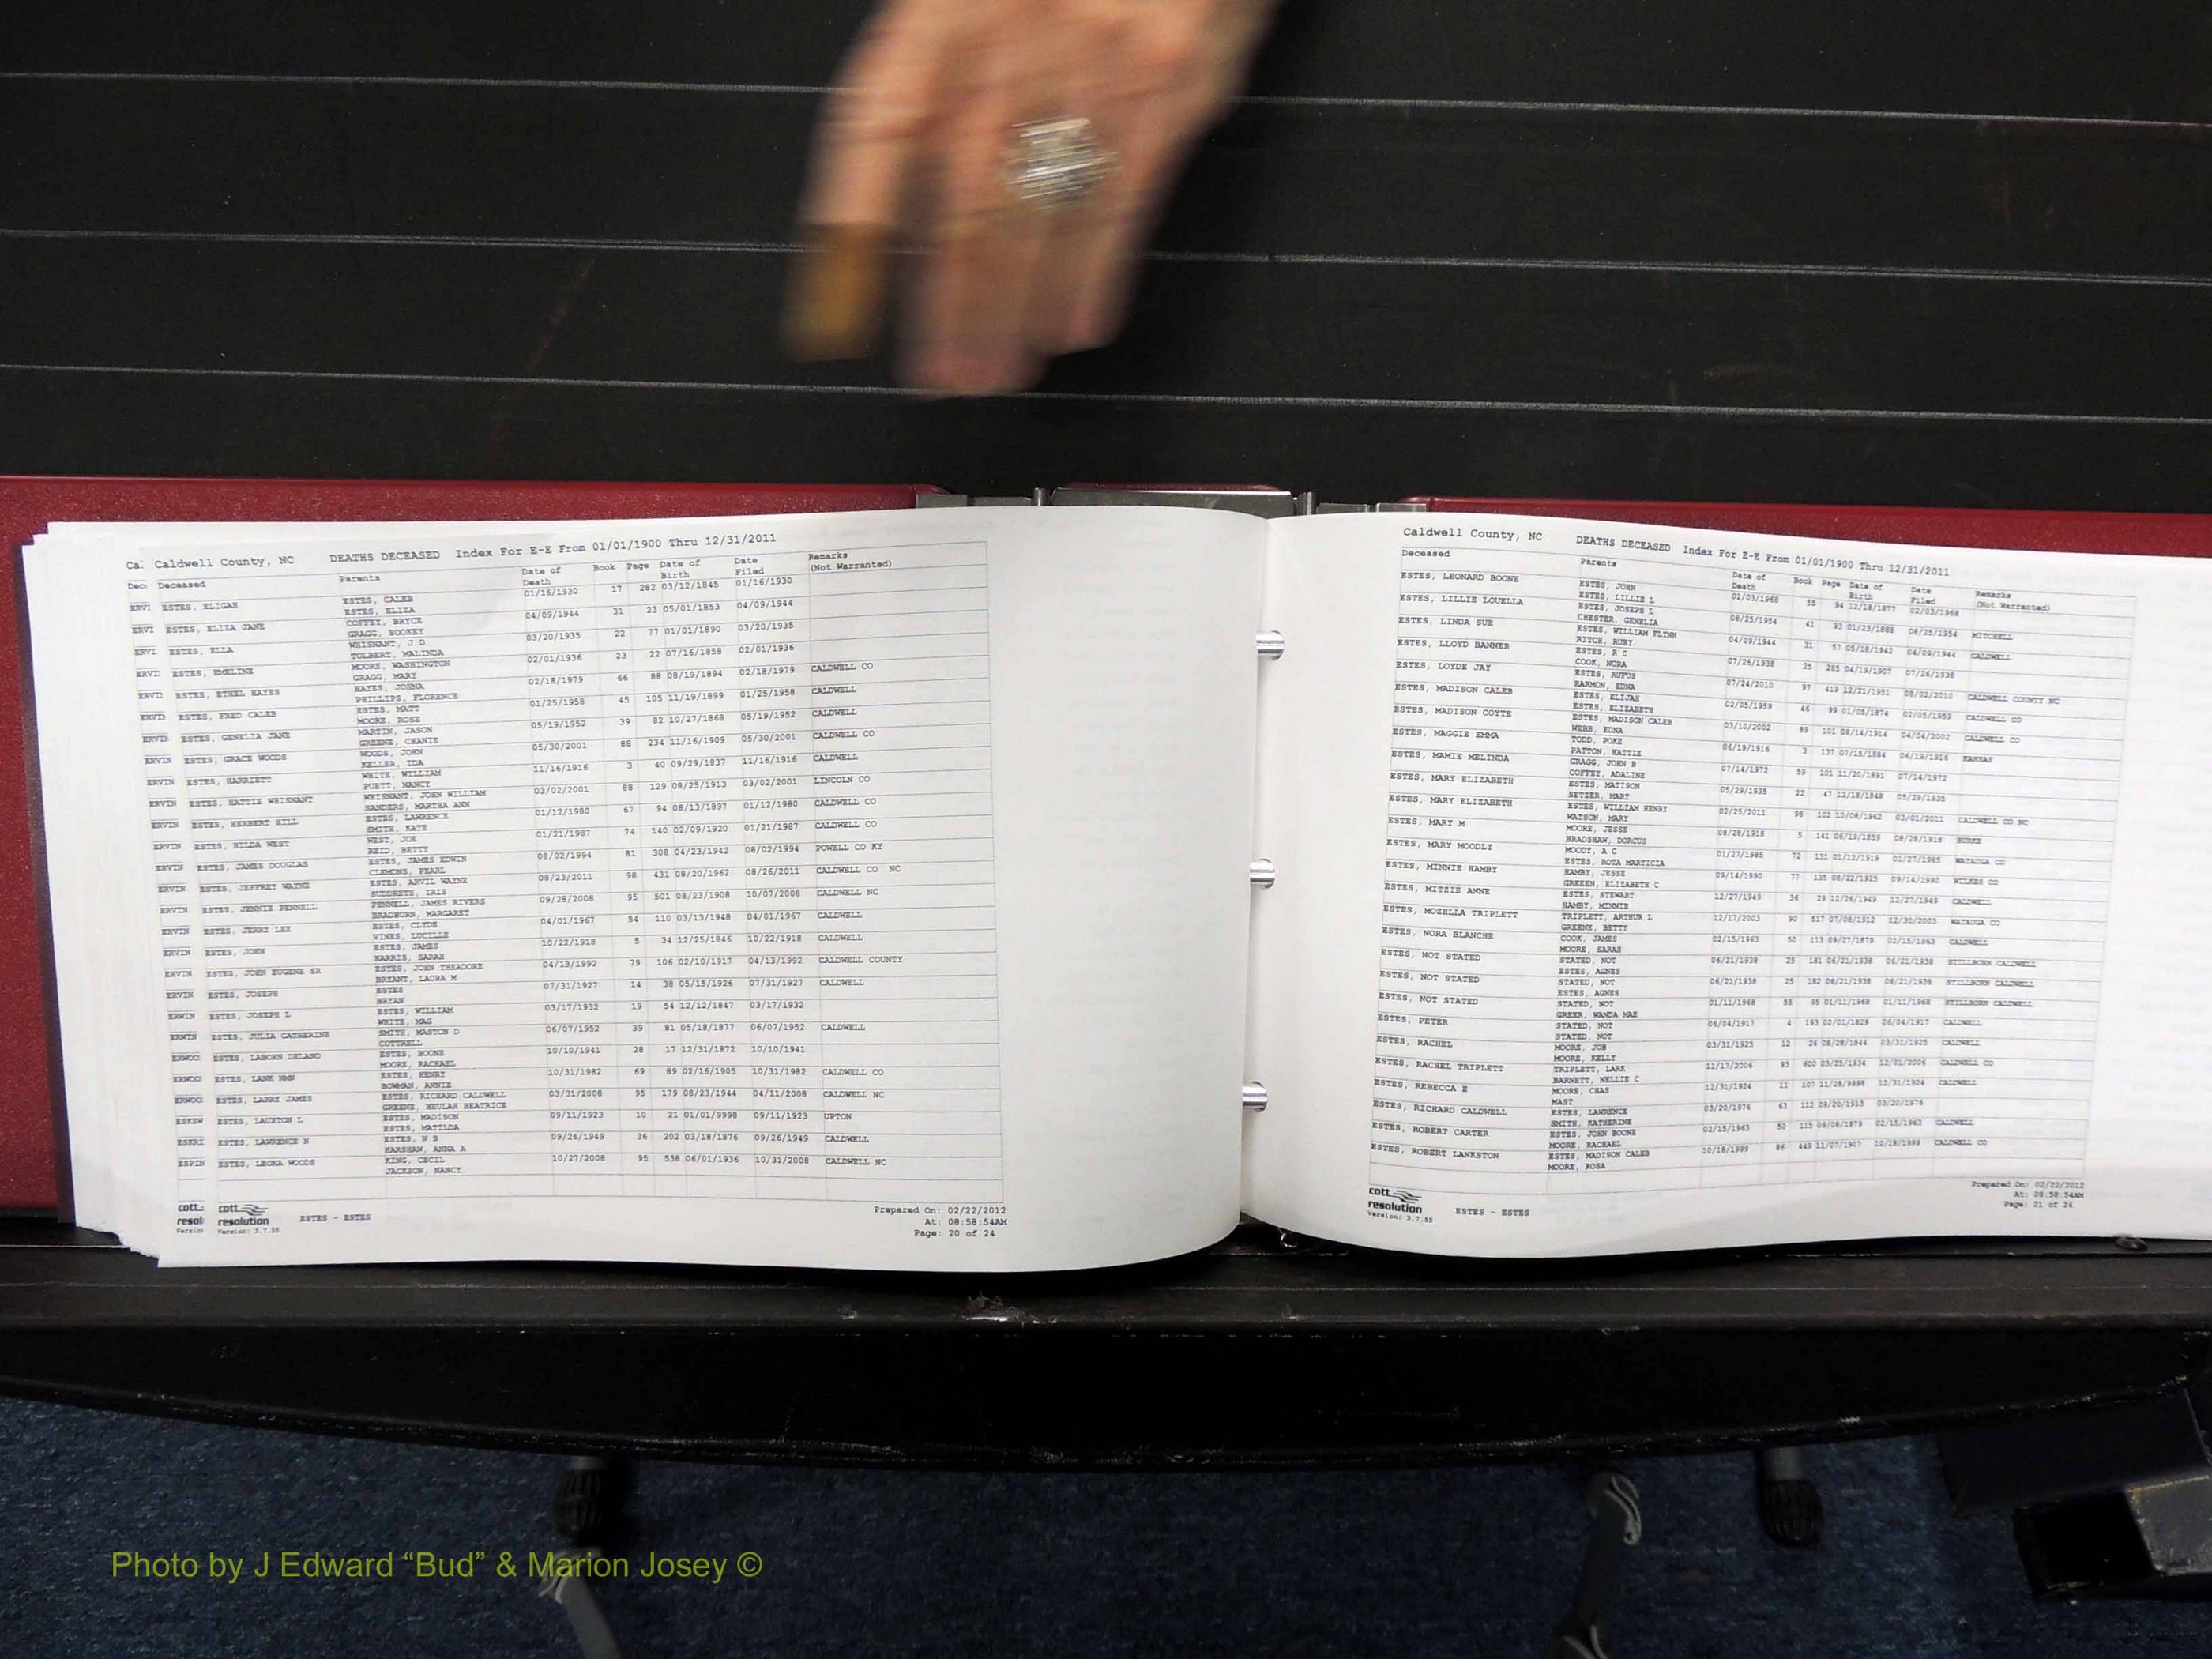 Ca: Caldwell County, NC DEATHS DECEASED Index For E-E From 01/01/1900 Thru 12/31/2011
Dec Deceased Parents Date of Death Book Page Date of Birth Date Filed Remarks (Not Warranted)
ERVI ESTES, ELIGAH ESTES, CALEB 01/16/1930 17 282 03/12/1845 01/16/1930
ESTES, ELIZA
ERVI ESTES, ELIZA JANE COFFEY, BRYCE 04/09/1944 31 23 05/01/1853 04/09/1944
GRAGG, SOOKEY
ERVI ESTES, ELLA WHISNANT, J D 03/20/1935 22 77 01/01/1890 03/20/1935
TOLBERT, MALINDA
ERVI ESTES, EMELINE MOORE, WASHINGTON 02/01/1936 23 22 07/16/1858 02/01/1936
GRAGG, MARY
ERVI ESTES, ETHEL HAYES HAYES, JOHNA 02/18/1979 66 88 08/19/1894 02/18/1979 CALDWELL CO
PHILLIPS, FLORENCE
ERVID ESTES, FRED CALEB ESTES, MATT 01/25/1958 45 105 11/19/1899 01/25/1958 CALDWELL
MOORE, ROSE
ERVID ESTES, GENELIA JANE MARTIN, JASON 05/19/1952 39 82 10/27/1868 05/19/1952 CALDWELL
GREENE, CHANIE
ERVIN ESTES, GRACE WOODS WOODS, JOHN 05/30/2001 88 234 11/16/1909 05/30/2001 CALDWELL CO
KELLER, IDA
ERVIN ESTES, HARRIETT WHITE, WILLIAM 11/16/1916 3 40 09/29/1837 11/16/1916 CALDWELL
PUETT, NANCY
ERVIN ESTES, HATTIE WHISNANT WHISNANT, JOHN WILLIAM 03/02/2001 88 129 08/25/1913 03/02/2001 LINCOLN CO
SANDERS, MARTHA ANN
ERVIN ESTES, HERBERT HILL ESTES, LAWRENCE 01/12/1980 67 94 08/13/1897 01/12/1980 CALDWELL CO
SMITH, KATE
ERVIN ESTES, HILDA WEST WEST, JOE 01/21/1987 74 140 02/09/1920 01/21/1987 CALDWELL CO
REID, BETTY
ERVIN ESTES, JAMES DOUGLAS ESTES, JAMES EDWIN 08/02/1994 81 308 04/23/1942 08/02/1994 POWELL CO KY
CLEMONS, PEARL
ERVIN ESTES, JEFFREY WAYNE ESTES, ARVIL WAYNE 08/23/2011 98 431 08/20/1962 08/26/2011 CALDWELL CO NC
SUDDRETH, IRIS
ERVIN ESTES, JENNIE PENNELL PENNELL, JAMES RIVERS 09/28/2008 95 501 08/23/1908 10/07/2008 CALDWELL NC
BRADBURN, MARGARET
ERVIN ESTES, JERRY LEE ESTES, CLYDE 04/01/1967 54 110 03/13/1948 04/01/1967 CALDWELL
VINES, LUCILLE
ERVIN ESTES, JOHN ESTES, JAMES 10/22/1918 5 34 12/25/1846 10/22/1918 CALDWELL
HARRIS, SARAH
ERVIN ESTES, JOHN EUGENE SR ESTES, JOHN THEADORE 04/13/1992 79 106 02/10/1917 04/13/1992 CALDWELL COUNTY
BRYANT, LAURA M
ERVIN ESTES, JOSEPH ESTES 07/31/1927 14 38 05/15/1926 07/31/1927 CALDWELL
BRYAN
ERWIN ESTES, JOSEPH L ESTES, WILLIAM 03/17/1932 19 54 12/12/1847 03/17/1932
WHITE, MAG
ERWIN ESTES, JULIA CATHERINE SMITH, MASTON D 06/07/1952 39 81 05/18/1877 06/07/1952 CALDWELL
COTTRELL
ERWOO ESTES, LABORN DELANO ESTES, BOONE 10/10/1941 28 17 12/31/1872 10/10/1941
MOORE, RACHAEL
ERWOO ESTES, LANK NMN ESTES, HENRY 10/31/1982 69 89 02/16/1905 10/31/1982 CALDWELL CO
BOWMAN, ANNIE
ERWOO ESTES, LARRY JAMES ESTES, RICHARD CALDWELL 03/31/2008 95 179 08/23/1944 04/11/2008 CALDWELL NC
GREENE, BEULAH BEATRICE
ESKEW ESTES, LAUXTON L ESTES, MADISON 09/11/1923 10 21 01/01/9998 09/11/1923 UPTON
ESTES, MATILDA
ESKRI ESTES, LAWRENCE N ESTES, N B 09/26/1949 36 202 03/18/1876 09/26/1949 CALDWELL
HARSHAW, ANNA A
ESPIN ESTES, LEONA WOODS KING, CECIL 10/27/2008 95 538 06/01/1936 10/31/2008 CALDWELL NC
JACKSON, NANCY
cott cott
resol resolution ESTES - ESTES Prepared On: 02/22/2012
Version Version: 3.7.55 At: 08:58:54AM
Page: 20 of 24
Caldwell County, NC DEATHS DECEASED Index For E-E From 01/01/1900 Thru 12/31/2011
Deceased Parents Date of Death Book Page Date of Birth Date Filed Remarks (Not Warranted)
ESTES, LEONARD BOONE ESTES, JOHN 02/03/1968 55 94 12/18/1877 02/03/1968
ESTES, LILLIE L
ESTES, LILLIE LOUELLA ESTES, JOSEPH L 08/25/1954 41 93 01/23/1888 08/25/1954 MITCHELL
CHESTER, GENELIA
ESTES, LINDA SUE ESTES, WILLIAM FLYNN 04/09/1944 31 57 05/18/1942 04/09/1944 CALDWELL
RITCH, RUBY
ESTES, LLOYD BANNER ESTES, R C 07/26/1938 25 285 04/19/1907 07/26/1938
COOK, NORA
ESTES, LOYDE JAY ESTES, RUFUS 07/24/2010 97 419 12/21/1951 08/02/2010 CALDWELL COUNTY NC
HARMON, EDNA
ESTES, MADISON CALEB ESTES, ELIJAH 02/05/1959 46 99 01/05/1874 02/05/1959 CALDWELL CO
ESTES, ELIZABETH
ESTES, MADISON COYTE ESTES, MADISON CALEB 03/10/2002 89 101 08/14/1914 04/04/2002 CALDWELL CO
WEBB, EDNA
ESTES, MAGGIE EMMA TODD, POKE 06/19/1916 3 137 07/15/1884 06/19/1916 KANSAS
PATTON, HATTIE
ESTES, MAMIE MELINDA GRAGG, JOHN B 07/14/1972 59 101 11/20/1891 07/14/1972
COFFEY, ADALINE
ESTES, MARY ELIZABETH ESTES, MATISON 05/29/1935 22 47 12/18/1848 05/29/1935
SETZER, MARY
ESTES, MARY ELIZABETH ESTES, WILLIAM HENRY 02/25/2011 98 102 10/08/1962 03/01/2011 CALDWELL CO NC
WATSON, MARY
ESTES, MARY M MOORE, JESSE 08/28/1918 5 141 06/19/1859 08/28/1918 BURKE
BRADSHAW, DORCUS
ESTES, MARY MOODLY MOODY, A C 01/27/1985 72 131 01/12/1919 01/27/1985 WATAUGA CO
ESTES, ROTA MARTICIA
ESTES, MINNIE HAMBY HAMBY, JESSE 09/14/1990 77 135 08/22/1925 09/14/1990 WILKES CO
GREEEN, ELIZABETH C
ESTES, MITZIE ANNE ESTES, STEWART 12/27/1949 36 29 12/26/1949 12/27/1949 CALDWELL
HAMBY, MINNIE
ESTES, MOZELLA TRIPLETT TRIPLETT, ARTHUR L 12/17/2003 90 517 07/08/1912 12/30/2003 WATAUGA CO
GREENE, BETTY
ESTES, NORA BLANCHE COOK, JAMES 02/15/1963 50 113 09/27/1879 02/15/1963 CALDWELL
MOORE, SARAH
ESTES, NOT STATED STATED, NOT 06/21/1938 25 181 06/21/1938 06/22/1938 STILLBORN CALDWELL
ESTES, AGNES
ESTES, NOT STATED STATED, NOT 06/21/1938 25 182 06/21/1938 06/21/1938 STILLBORN CALDWELL
ESTES, AGNES
ESTES, NOT STATED STATED, NOT 01/11/1968 55 95 01/11/1968 01/11/1968 STILLBORN CALDWELL
GREER, WANDA MAE
ESTES, PETER STATED, NOT 06/04/1917 4 193 02/01/1829 06/04/1917 CALDWELL
STATED, NOT
ESTES, RACHEL MOORE, JOB 03/31/1925 12 26 08/28/1844 03/31/1925 CALDWELL
MOORE, KELLY
ESTES, RACHEL TRIPLETT TRIPLETT, LARK 11/17/2006 93 600 03/25/1934 12/01/2006 CALDWELL CO
BARNETT, NELLIE C
ESTES, REBECCA E MOORE, CHAS 12/31/1924 11 107 11/28/9998 12/31/1924 CALDWELL
MAST
ESTES, RICHARD CALDWELL ESTES, LAWRENCE 03/20/1976 63 112 09/20/1913 03/20/1976
SMITH, KATHERINE
ESTES, ROBERT CARTER ESTES, JOHN BOONE 02/15/1963 50 115 09/08/1879 02/15/1963 CALDWELL
MOORE, RACHAEL
ESTES, ROBERT LANKSTON ESTES, MADISON CALEB 10/18/1999 86 449 11/07/1907 10/18/1999 CALDWELL CO
MOORE, ROSA
cott
resolution ESTES - ESTES Prepared On: 02/22/2012
Version: 3.7.55 At: 08:58:54AM
Page: 21 of 24
Photo by J Edward “Bud” & Marion Josey ©